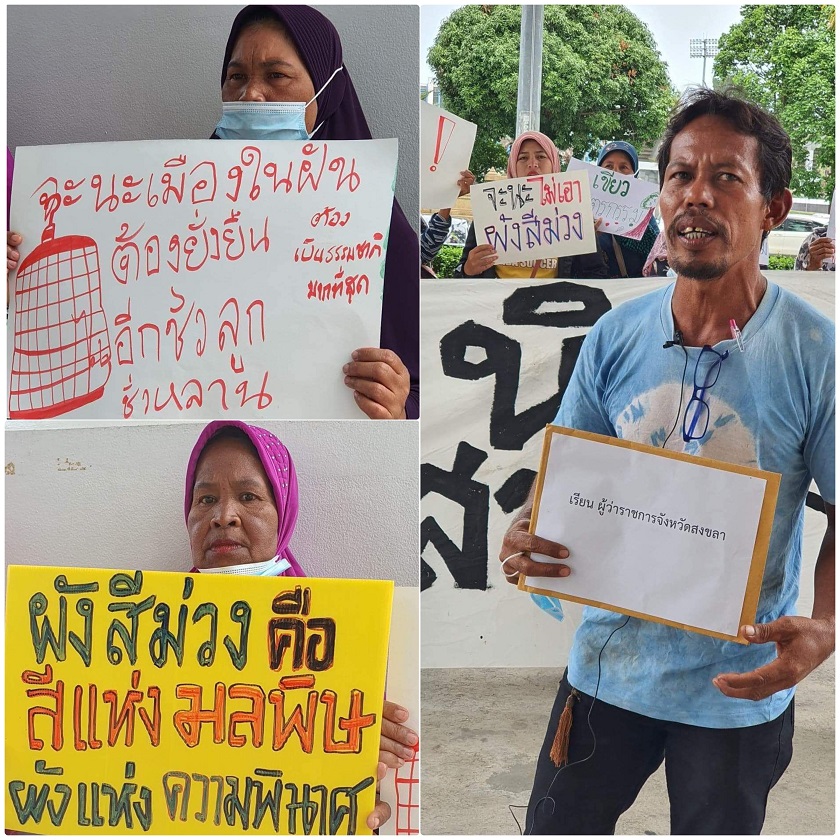 จะนะเมืองในฝัน
ต้องยั่งยืน
ต้อง
เป็นธรรมชาติ
มากที่สุด
อีกชั่วลูก
ชั่วหลาน
ผังสีม่วง คือ
สีแห่ง มลพิษ
ผังแห่ง ความพินาศ
!
จะนะ ไม่เอา
ผังสีม่วง
เขียว
เรียน ผู้ว่าราชการจังหวัดสงขลา